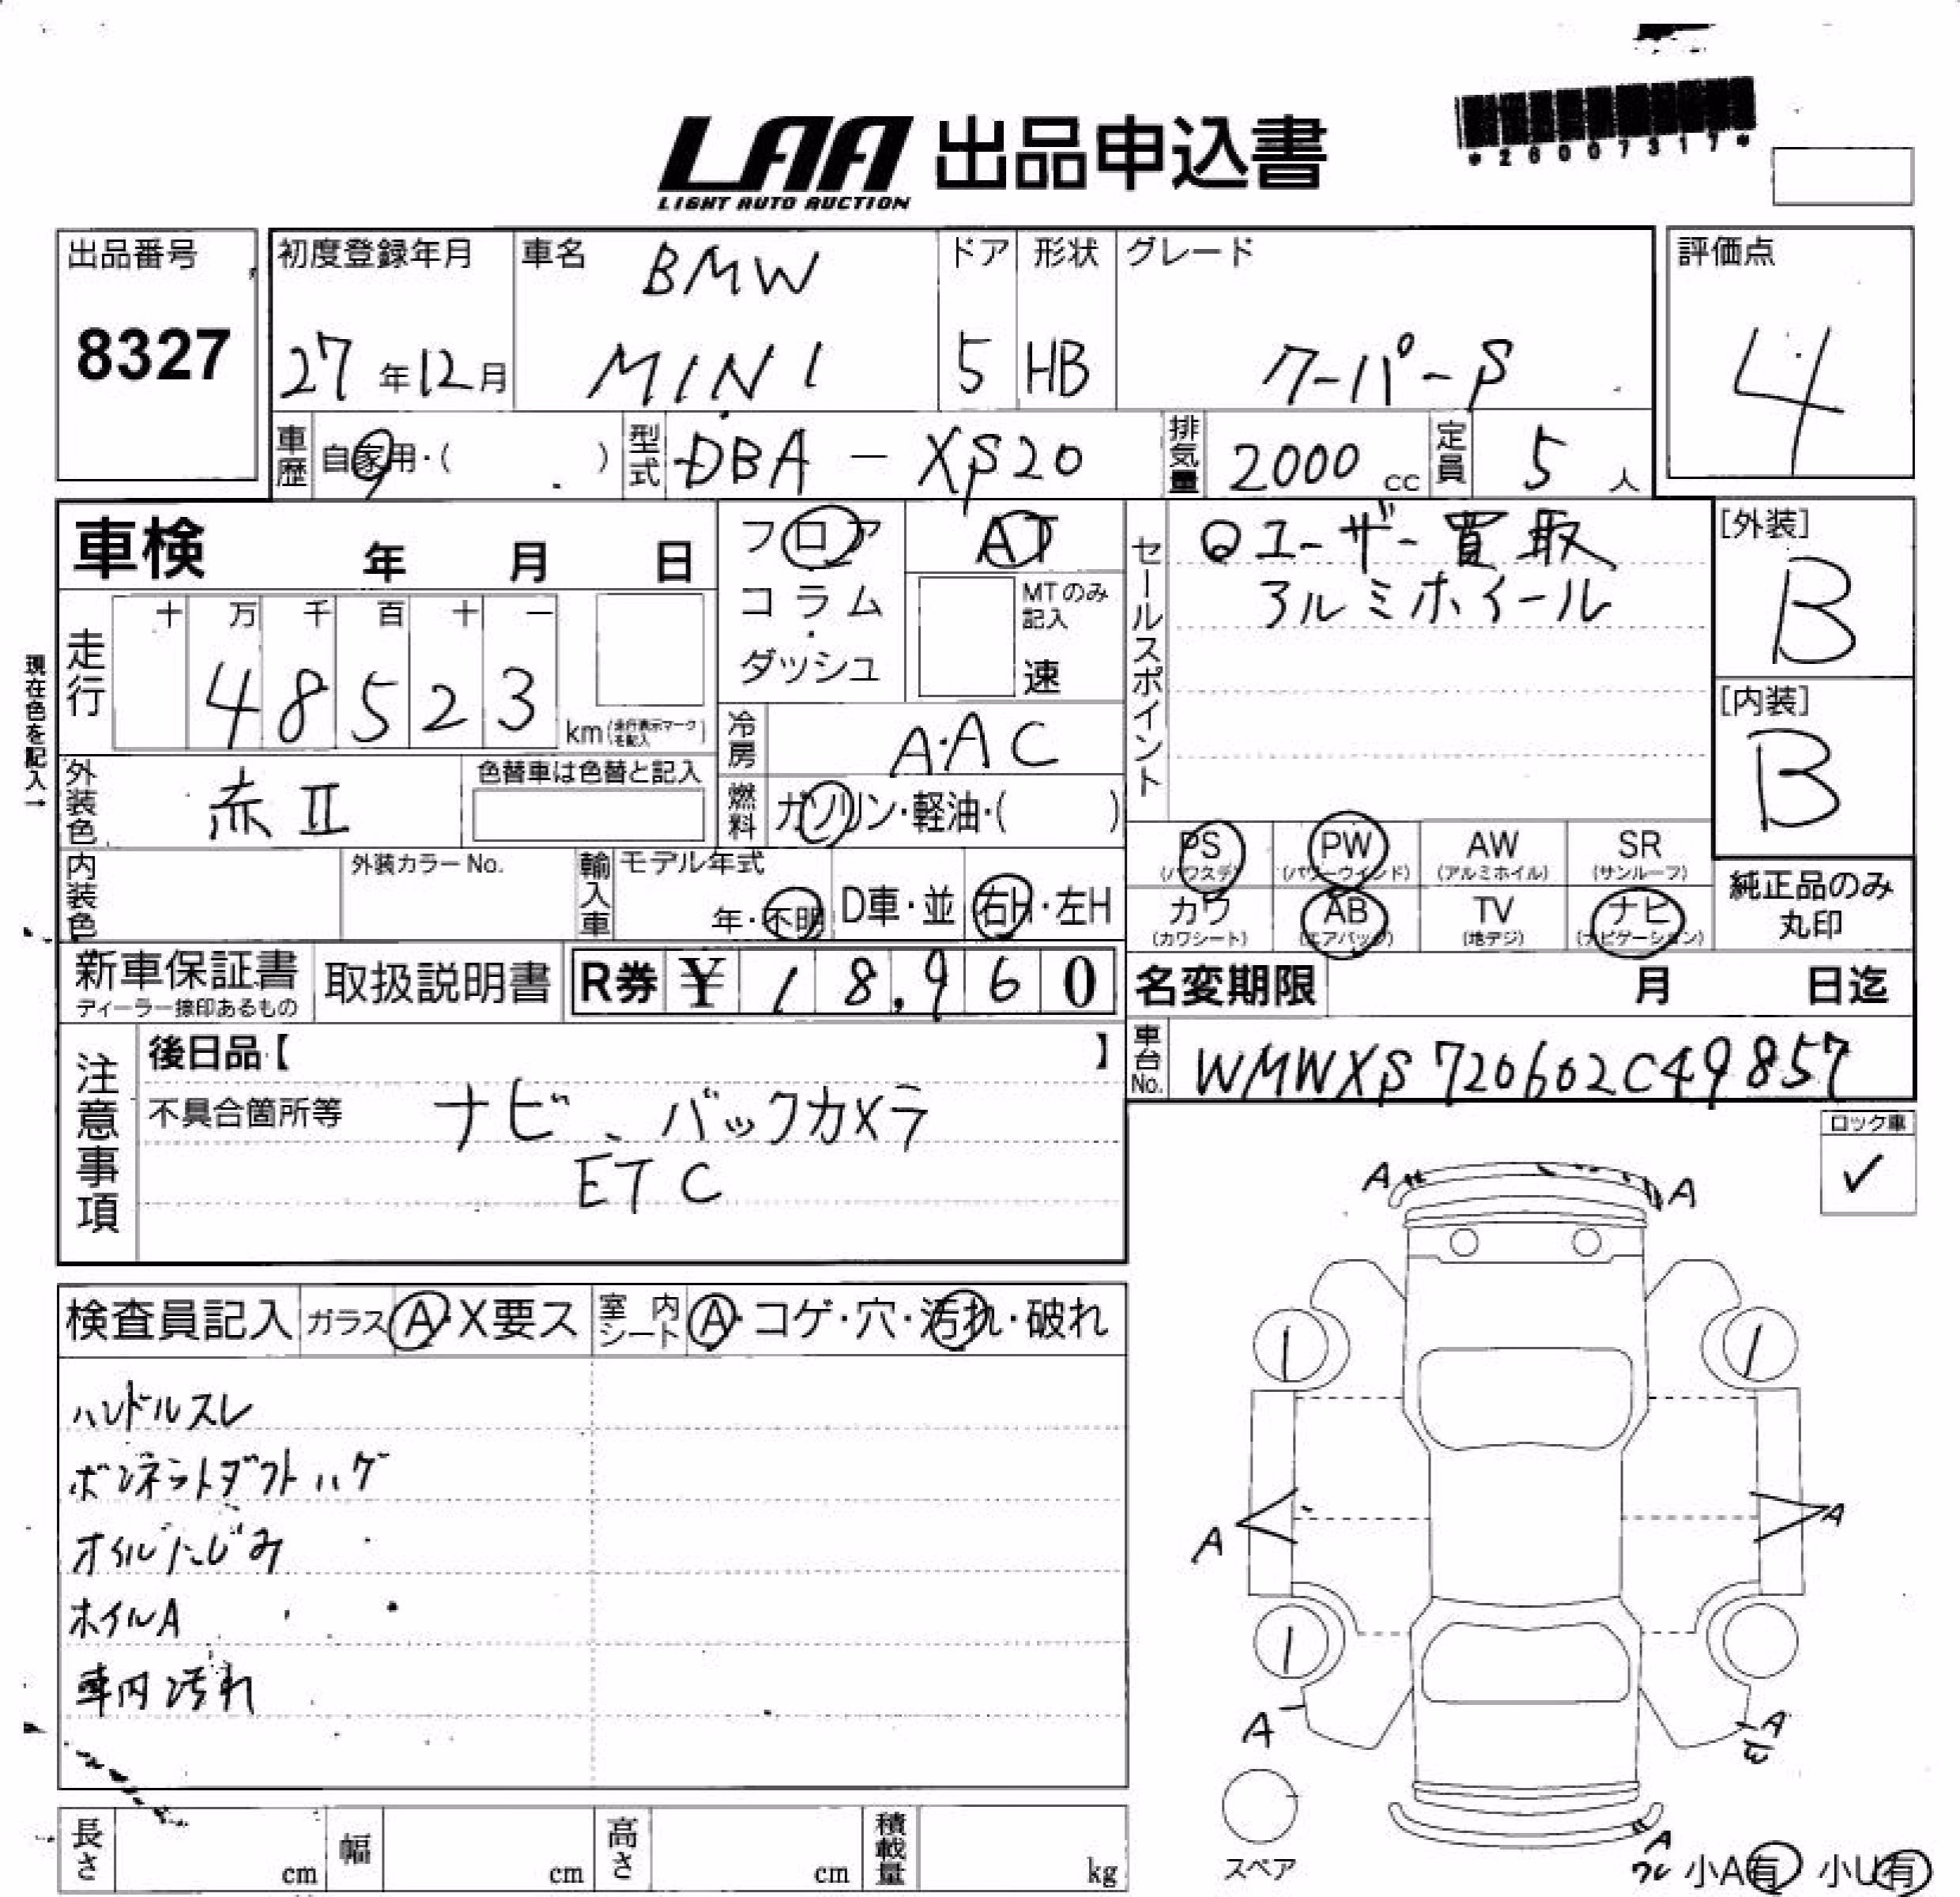 LAA 出品申込書
LIGHT AUTO AUCTION
*26007317*
出品番号
8327
初度登録年月
27年12月
車名
BMW
MINI
ドア
5
形状
HB
グレード
クーパーS
評価点
4
車歴 自家用・( )
型式 DBA-XS20
排気量 2000cc
定員 5人
車検 年 月 日
フロア
コラム
・
ダッシュ
AT
MTのみ記入
速
セールスポイント
Qユーザー買取
アルミホイール
[外装]
B
[内装]
B
現在色を記入→
走行
十 万 千 百 十 一
48523
km(走行表示マークを記入)
冷房 A・AC
外装色 赤II
色替車は色替と記入
燃料 ガソリン・軽油・( )
PS (パワステ)
PW (パワーウインド)
AW (アルミホイル)
SR (サンルーフ)
カワ (カワシート)
AB (エアバッグ)
TV (地デジ)
ナビ (ナビゲーション)
純正品のみ
丸印
内装色
外装カラーNo.
輸入車 モデル年式
年・不明
D車・並
右H・左H
新車保証書
ディーラー捺印あるもの
取扱説明書
R券 ¥18,960
名変期限 月 日迄
車台No. WMWXS720602C49857
注意事項
後日品【 】
不具合箇所等
ナビ、バックカメラ
ETC
ロック車
✓
検査員記入
ガラス A・X要ス
室内シート A・コゲ・穴・汚れ・破れ
ハンドルスレ
ボンネットダクトハゲ
オイルにじみ
ホイルA
車内汚れ
A A
A A
A A
A
スペア
小A有 小U有
長さ cm
幅 cm
高さ cm
積載量 kg